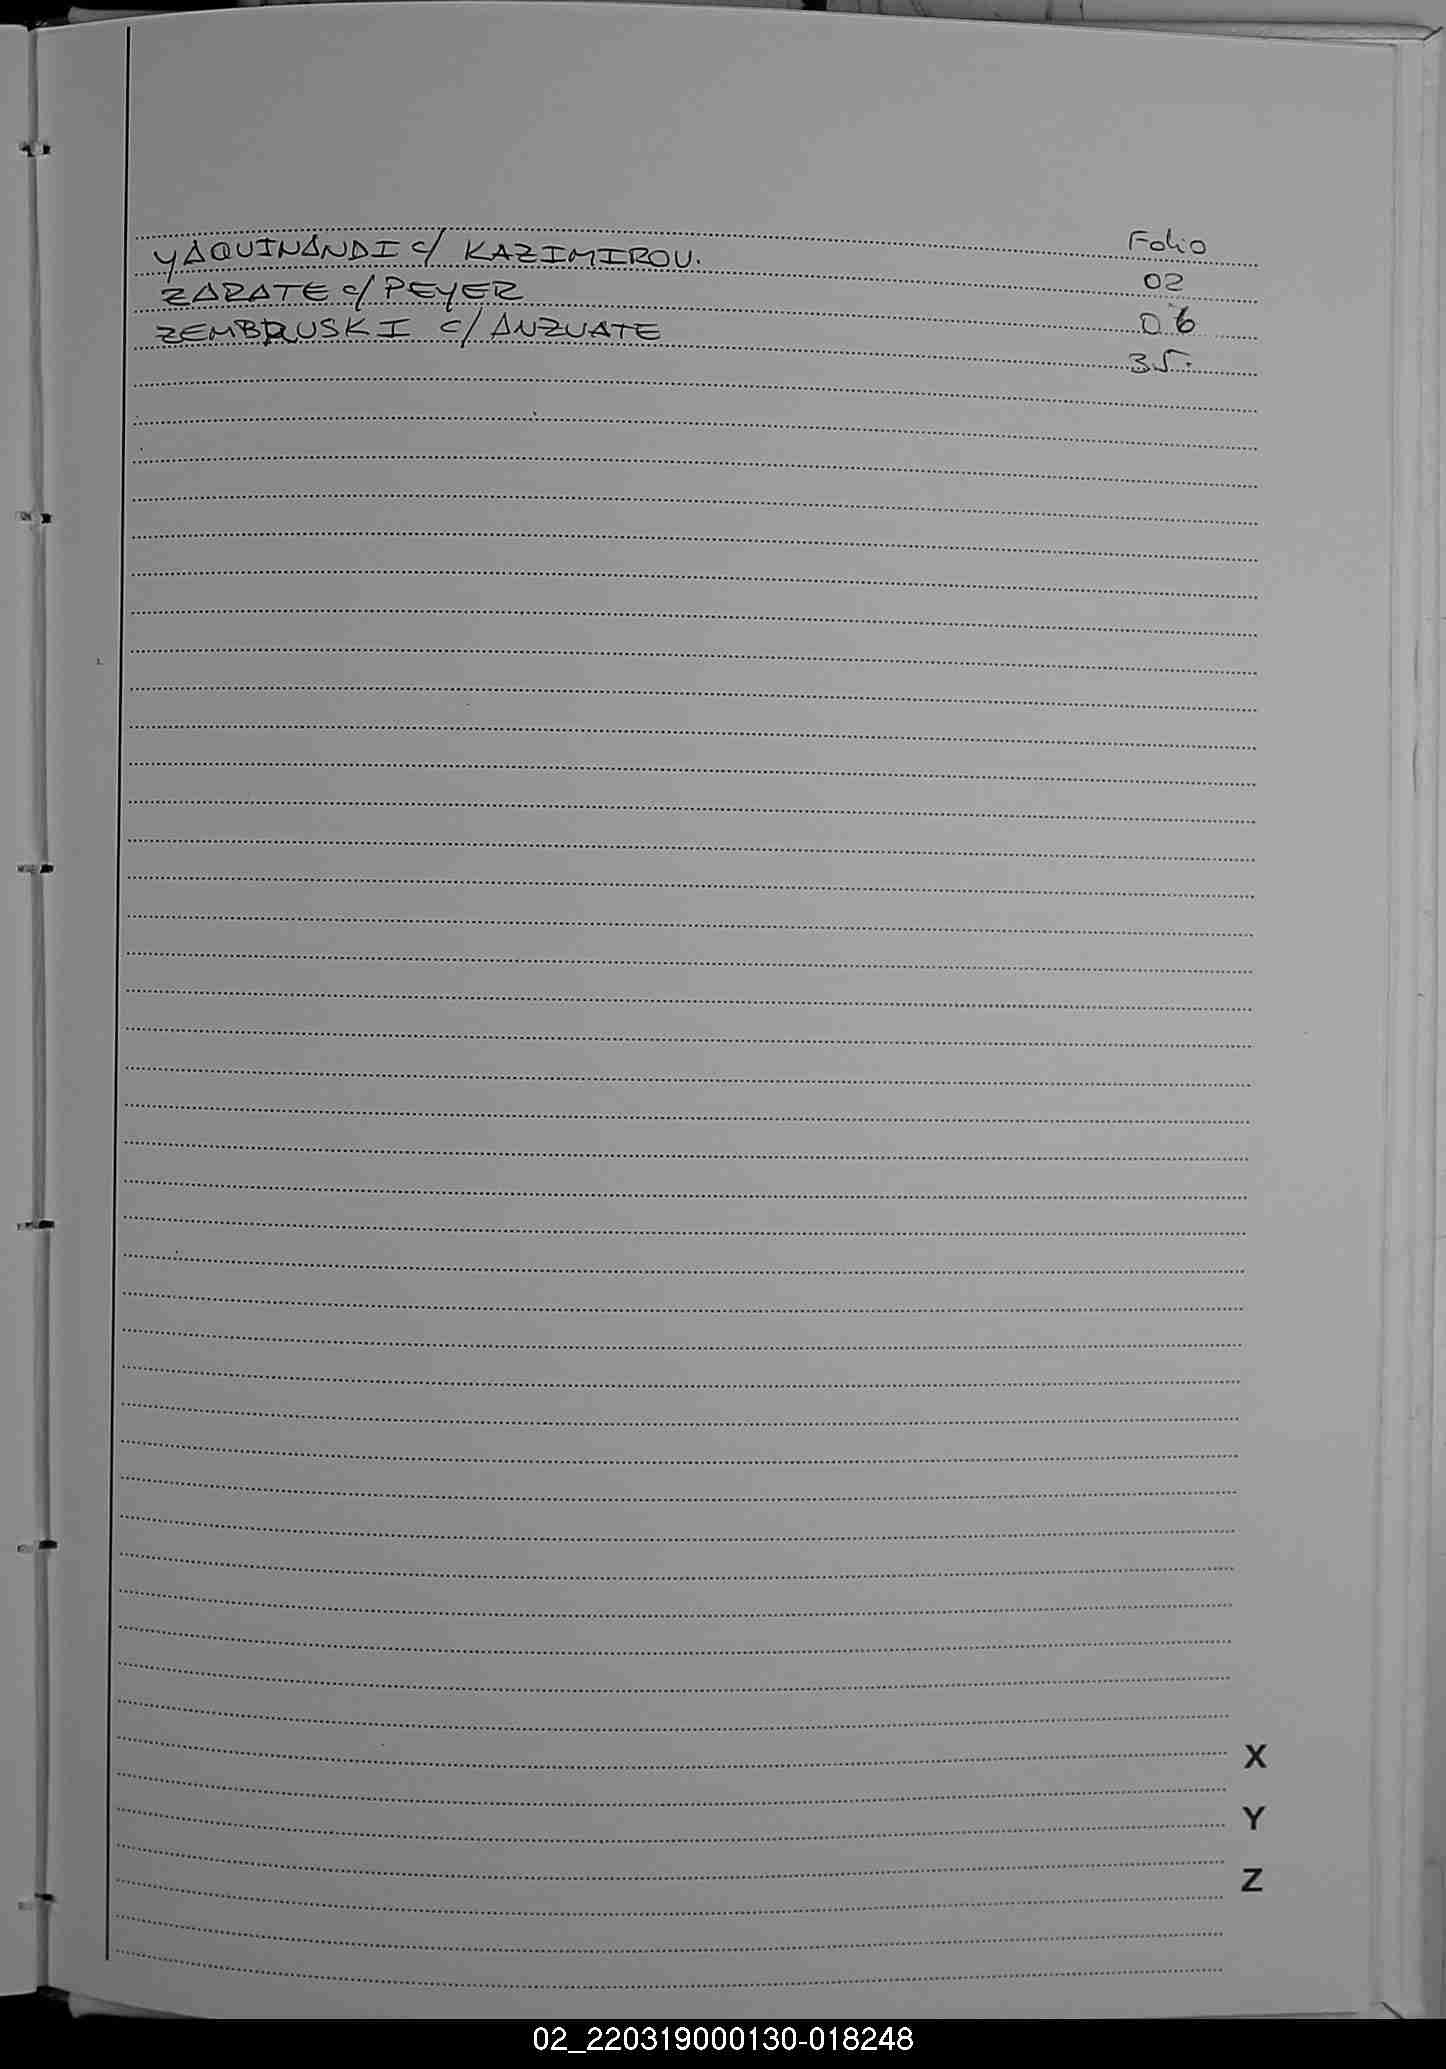 Folio
YAQUINANDI c/ KAZIMIROU. 02
ZARATE c/ PEYER 06
ZEMBRUSKI c/ ANZUATE 35.
X
Y
Z
02_220319000130-018248